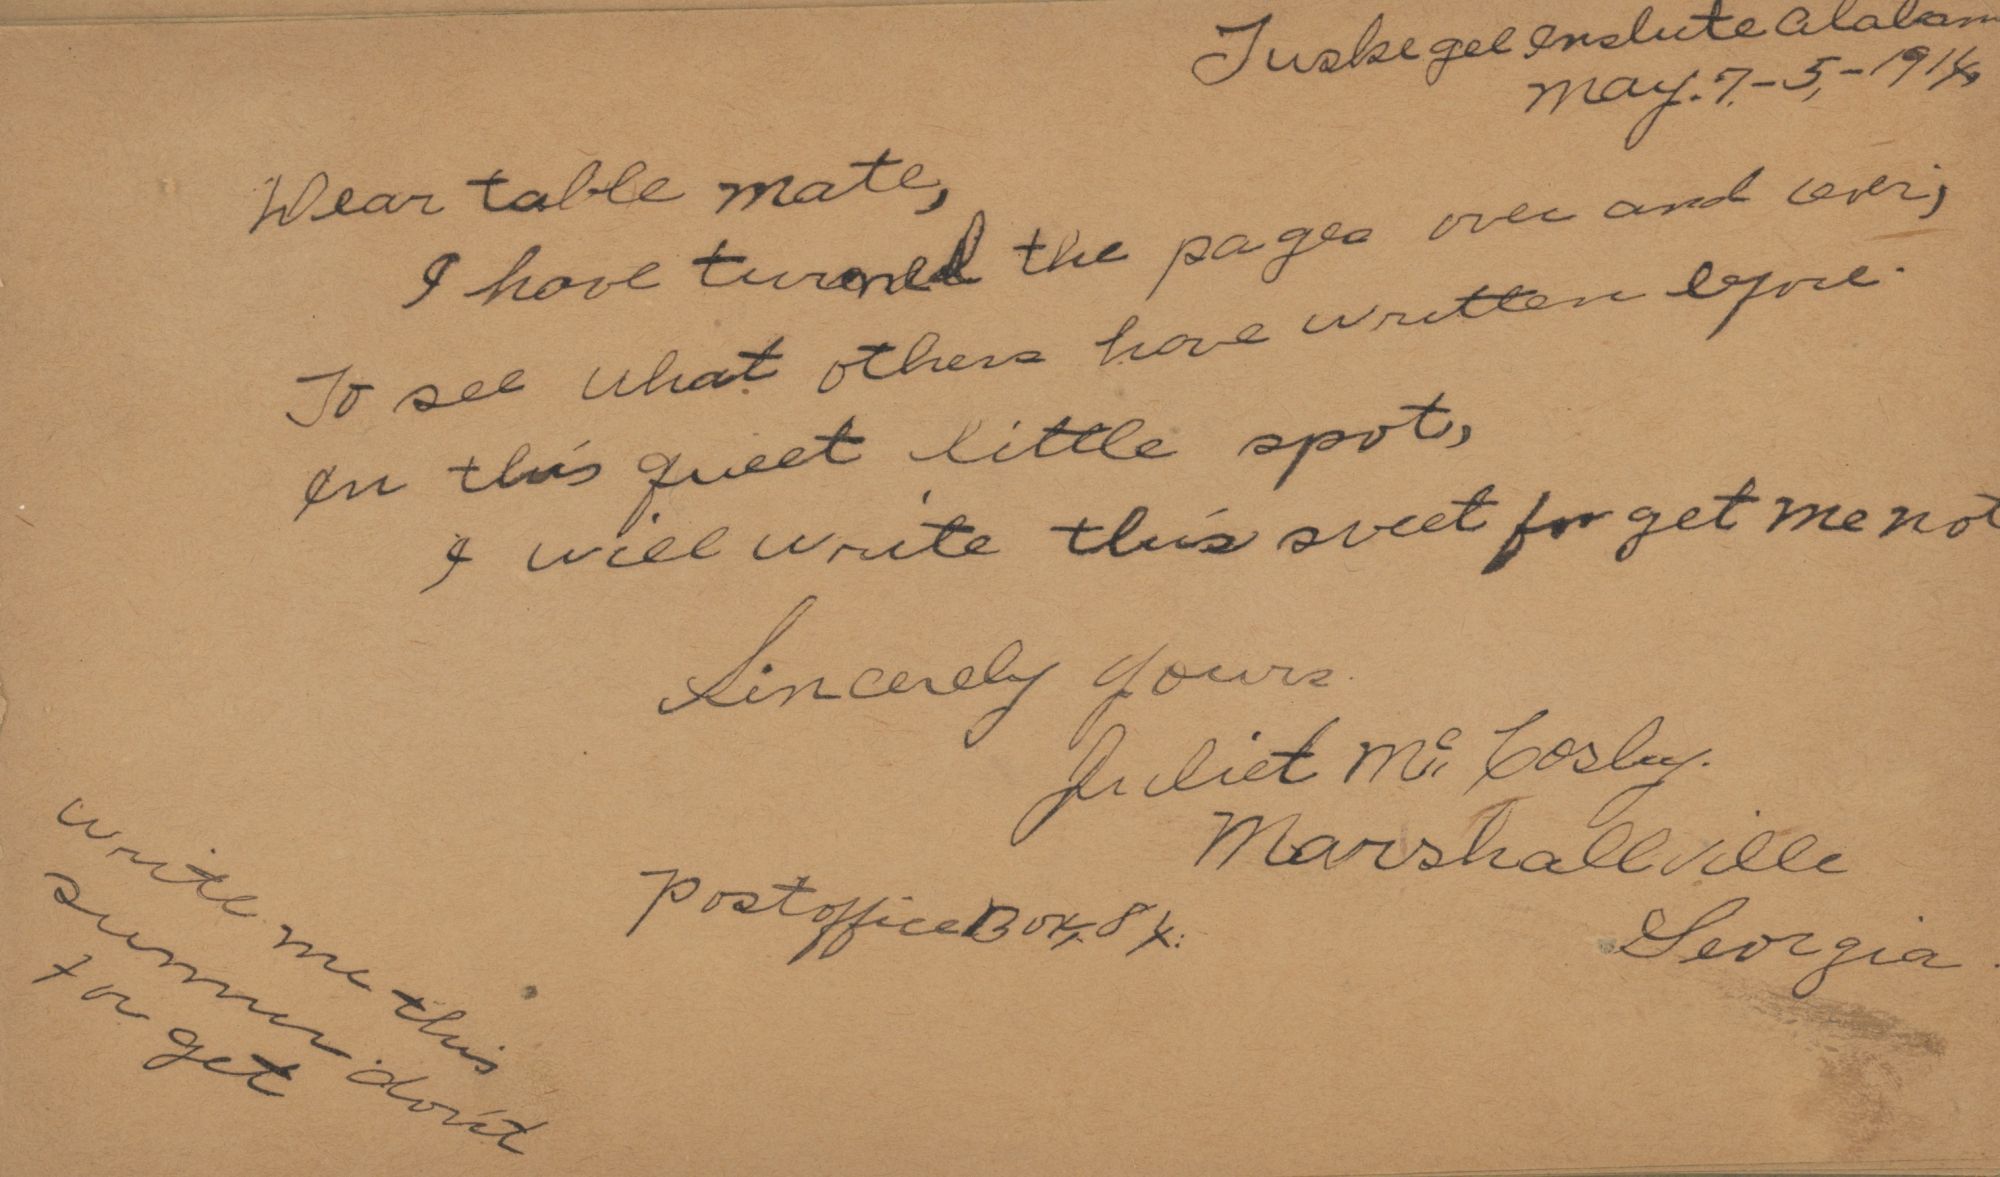 Tuskegee Enslute Alabam
May. 7.-5,-1914,
Dear table mate,
I have turned the pages over and over,
To see what others have written before.
In this queet little spot,
I will write this sweet for get me not
Sincerely yours.
Juliet Mc Cosby.
Marshallville
Post office Box, 84.
Georgia.
write me this
summer. don't
for get